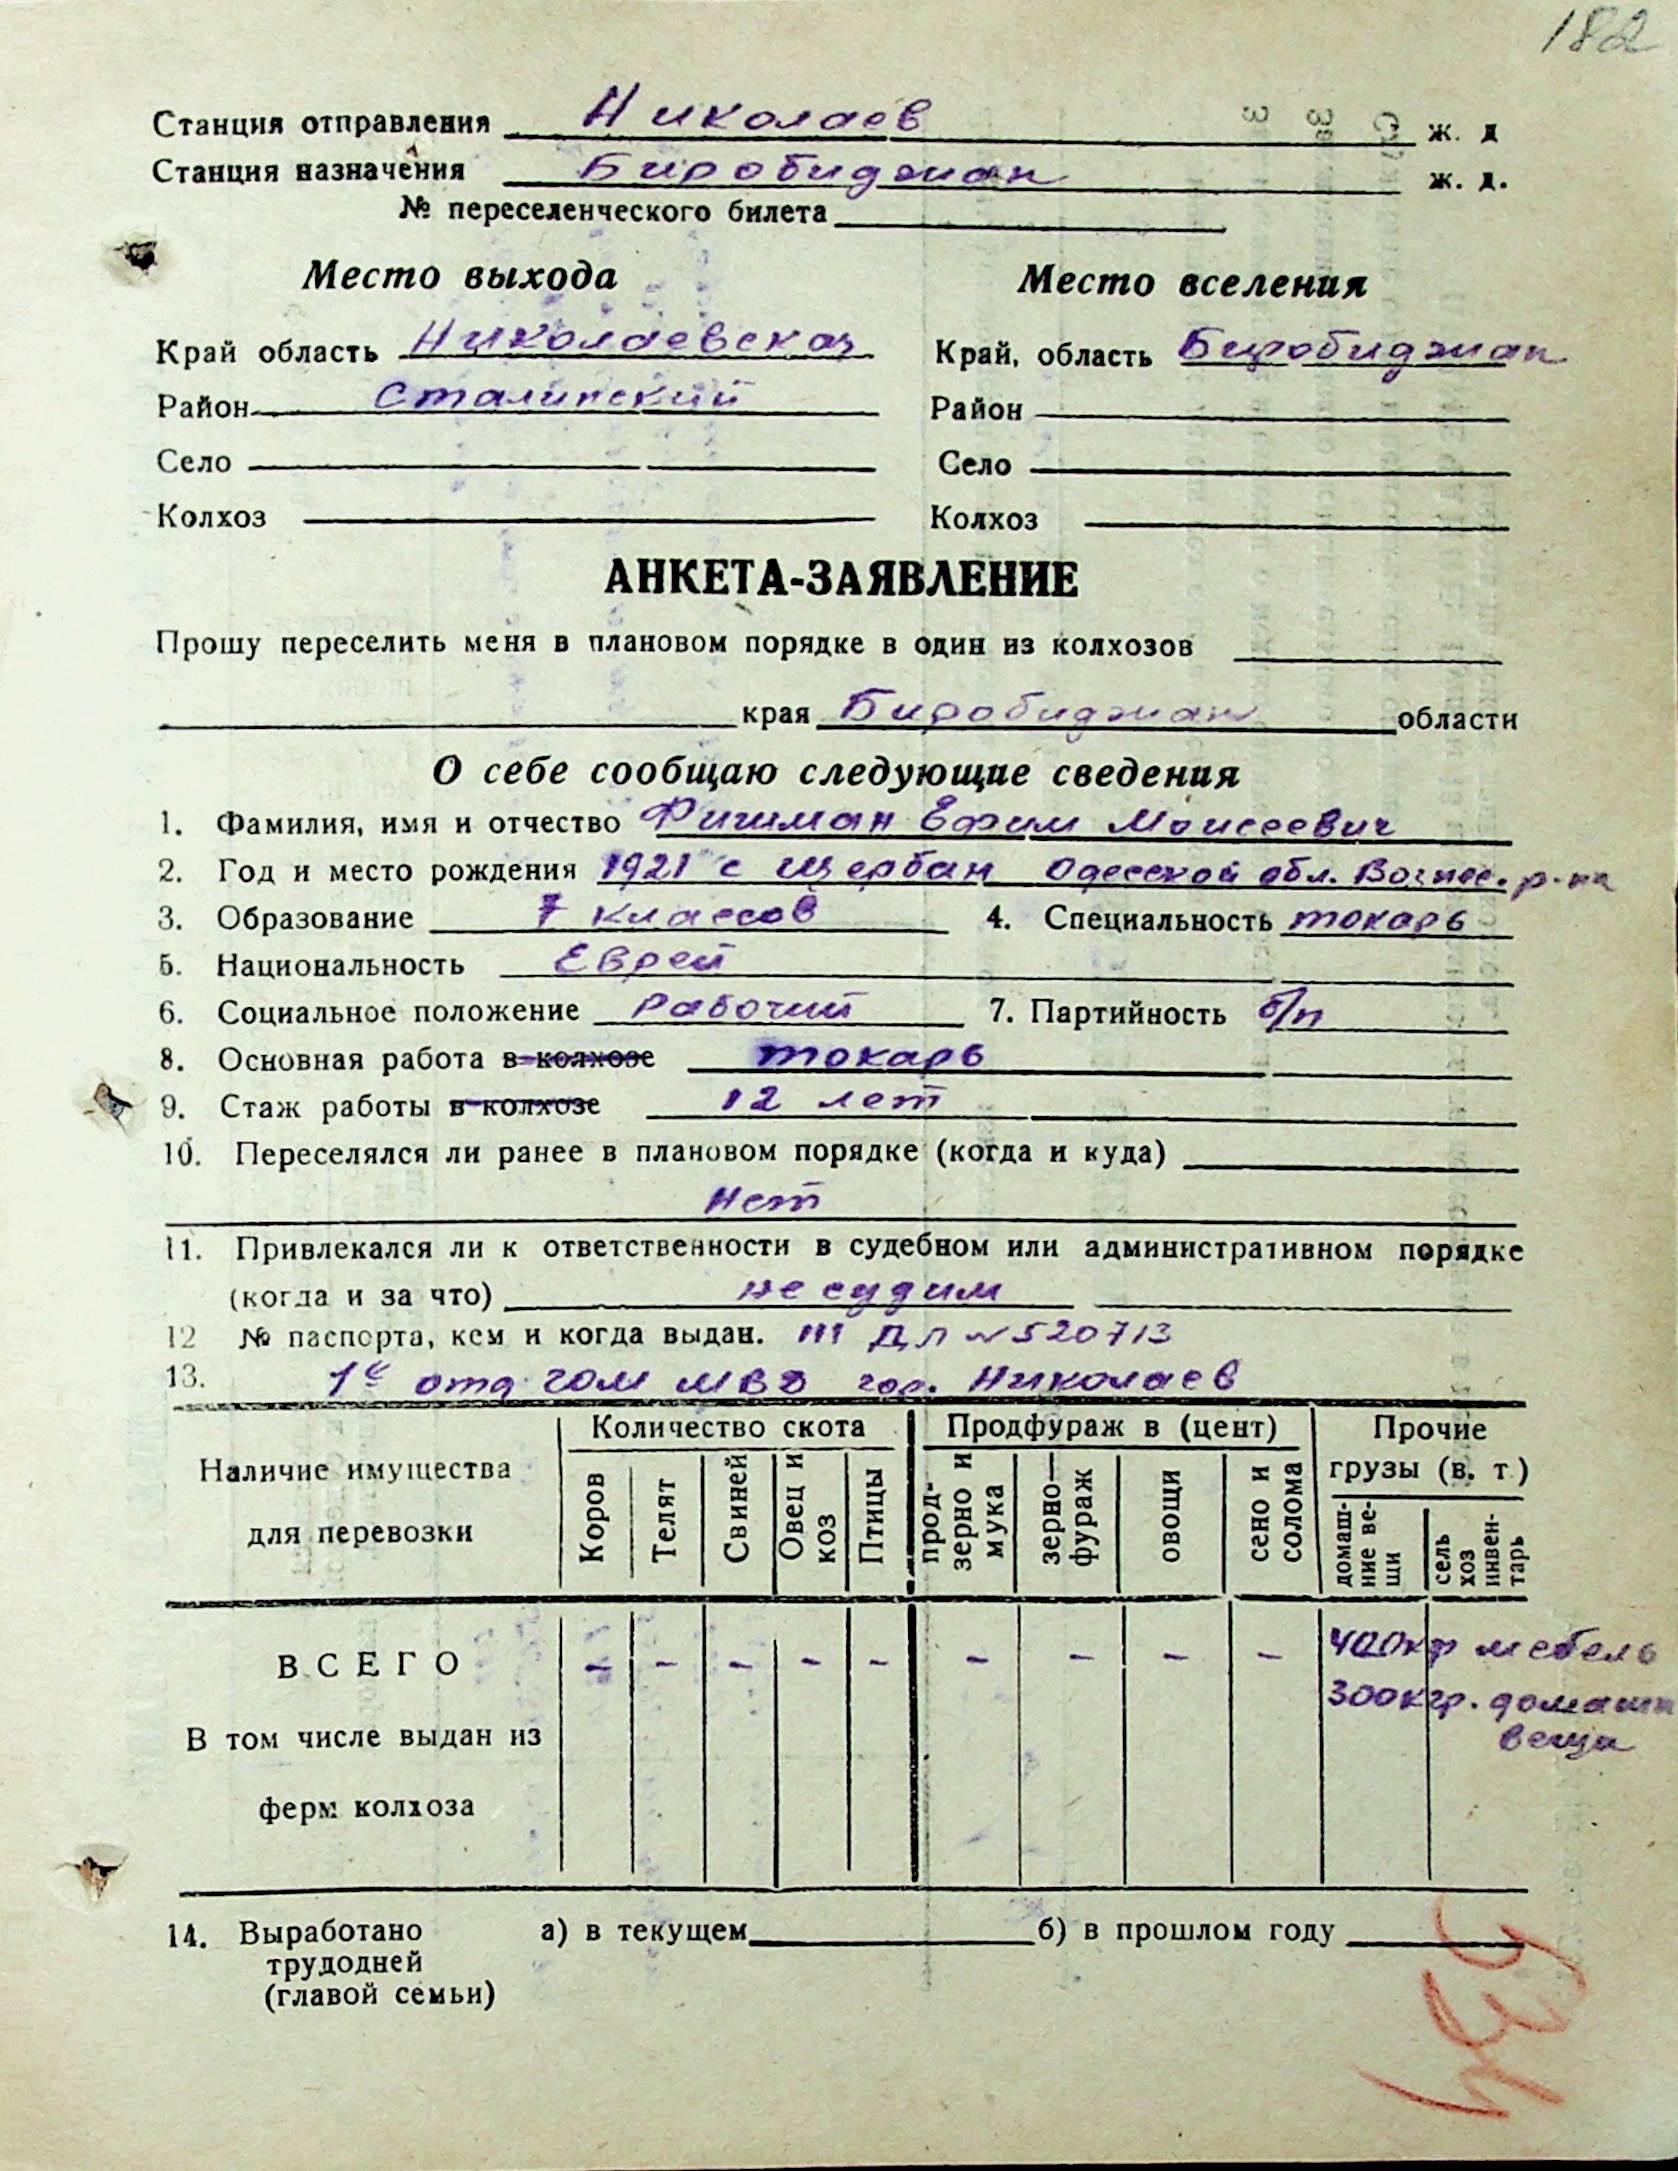 182
Станция отправления Николаев ж. д
Станция назначения Биробиджан ж. д.
№ переселенческого билета
Место выхода Место вселения
Край область Николаевская Край, область Биробиджан
Район Сталинский Район
Село Село
Колхоз Колхоз
АНКЕТА-ЗАЯВЛЕНИЕ
Прошу переселить меня в плановом порядке в один из колхозов
края Биробиджан области
О себе сообщаю следующие сведения
1. Фамилия, имя и отчество Фишман Ефим Моисеевич
2. Год и место рождения 1921 с Щербан Одесской обл. Вознес. р-на
3. Образование 7 классов 4. Специальность токарь
5. Национальность Еврей
6. Социальное положение Рабочий 7. Партийность б/п
8. Основная работа в колхозе токарь
9. Стаж работы в колхозе 12 лет
10. Переселялся ли ранее в плановом порядке (когда и куда)
Нет
11. Привлекался ли к ответственности в судебном или административном порядке
(когда и за что) не судим
12 № паспорта, кем и когда выдан. III ДЛ № 520713
13. 1е отд ГОМ МВД гор. Николаев
Наличие имущества для перевозки
Количество скота Продфураж в (цент) Прочие грузы (в. т.)
Коров Телят Свиней Овец и коз Птицы прод-зерно и мука зерно—фураж овощи сено и солома домаш-ние ве-щи сель хоз инвен-тарь
ВСЕГО - - - - - - - - - 400кг мебель
300кгр. домашн
В том числе выдан из вещи
ферм колхоза
14. Выработано а) в текущем б) в прошлом году
трудодней
(главой семьи)